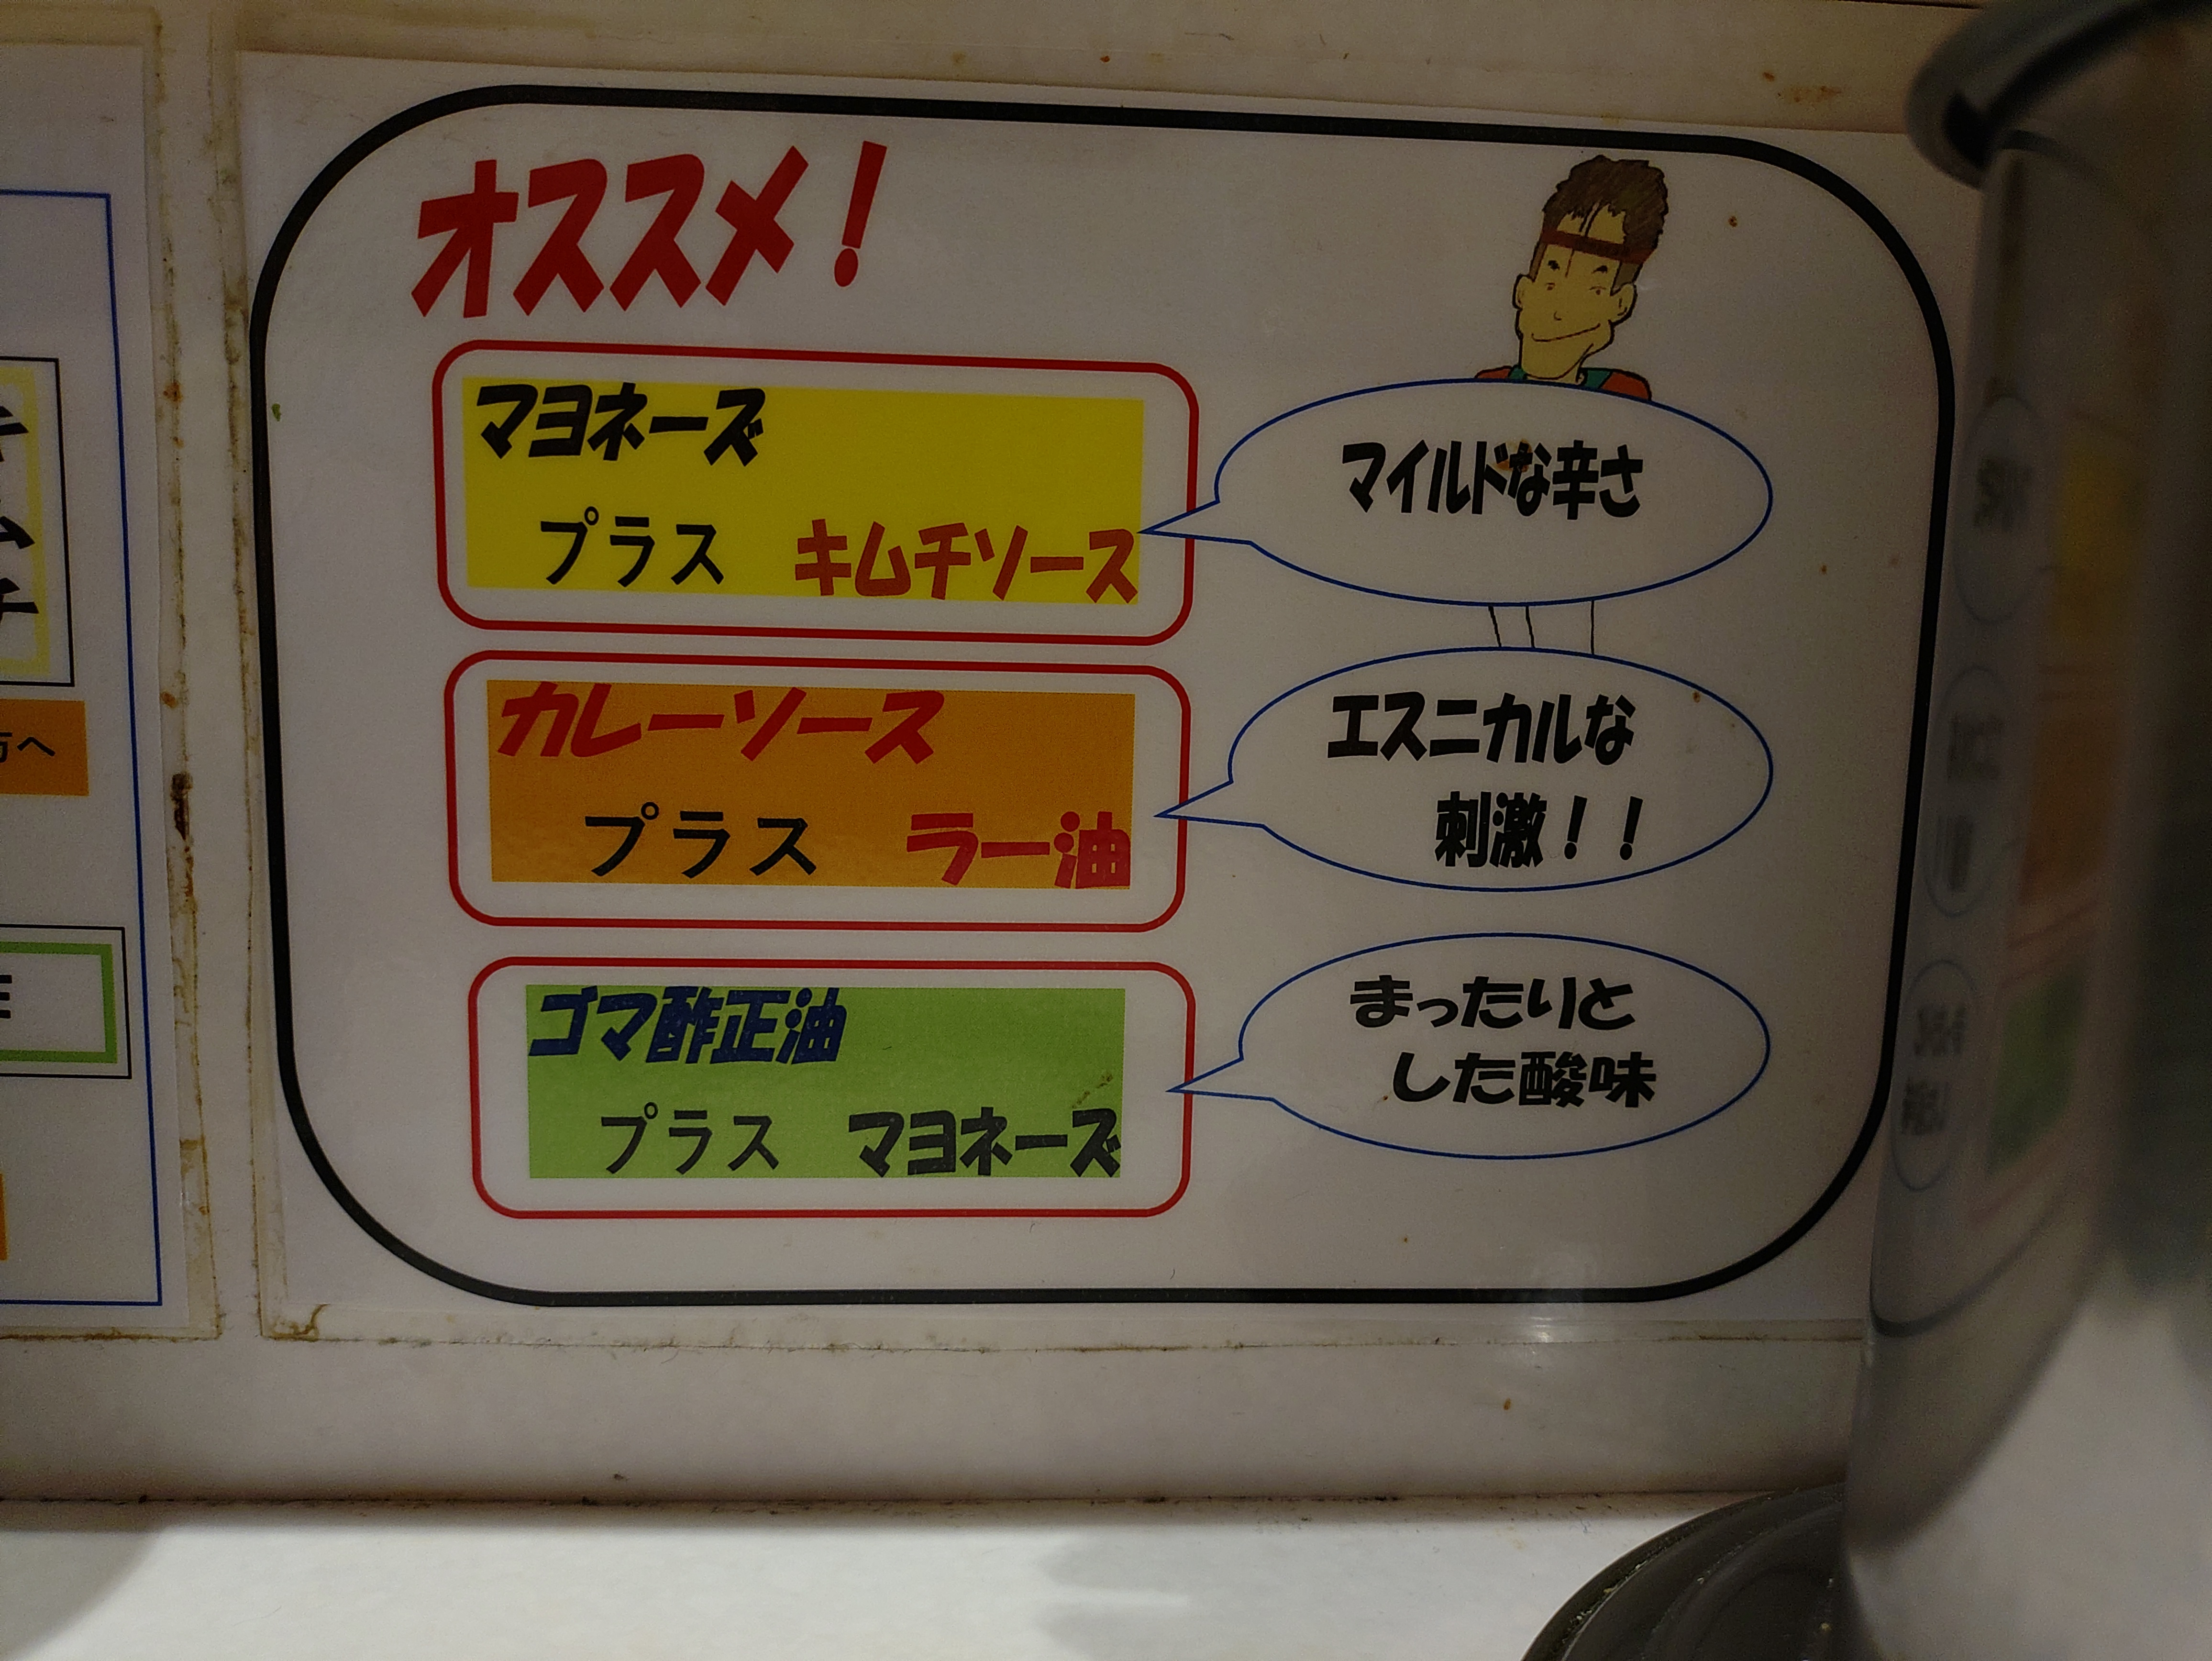 オススメ！
マヨネーズ
プラス キムチソース
マイルドな辛さ
カレーソース
プラス ラー油
エスニカルな
刺激！！
ゴマ酢正油
プラス マヨネーズ
まったりと
した酸味
キムチ
方へ